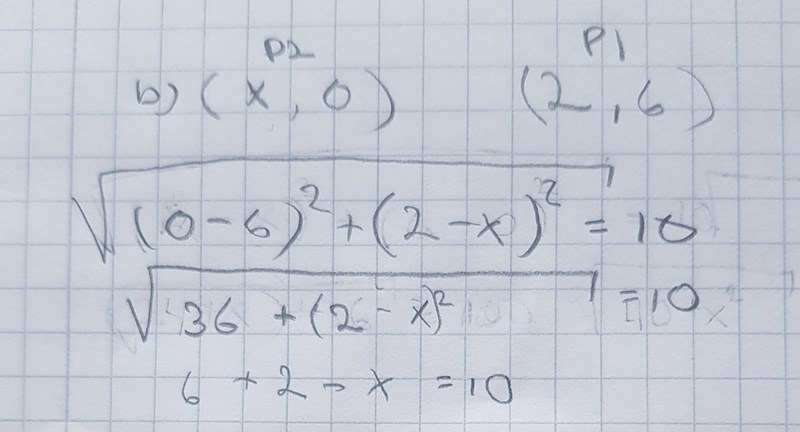 P2 P1
b) (x, 0) (2, 6)
√(0-6)²+(2-x)² = 10
√36 +(2-x)² = 10
6 + 2 - x = 10